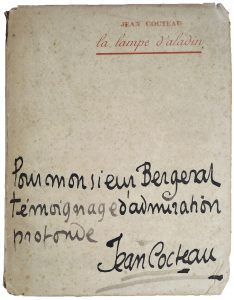 JEAN COCTEAU
la lampe d'aladin
Pour monsieur Bergerat
témoignage d'admiration
profonde
Jean Cocteau